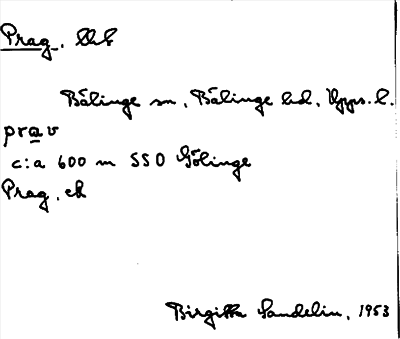 Prag,
Bälinge sn, Bälinge hd, Upps. l.
prav
c:a 600 m SSO Gölinge
Prag, ek
Birgitta Sandelin, 1953